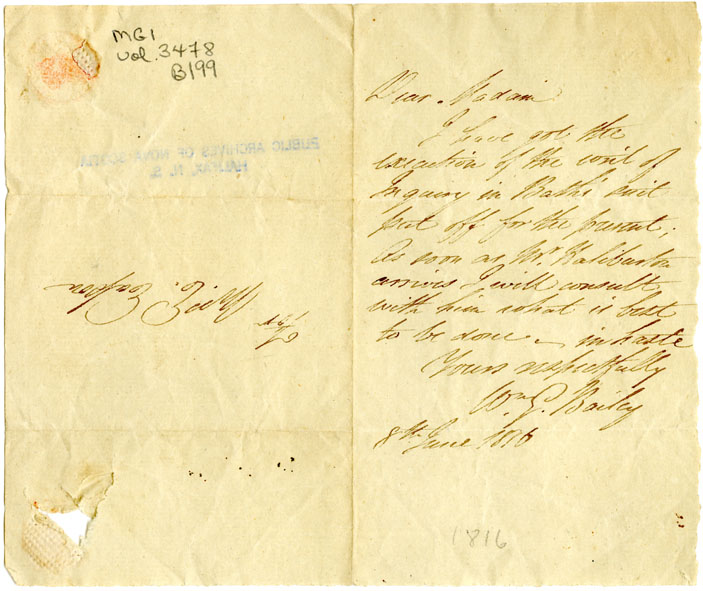 MG1
Vol. 3478
B199
PUBLIC ARCHIVES OF NOVA SCOTIA
HALIFAX, N. S.
Mrs. E.
Dear Madam
I have got the
execution of the writ of
Inquiry in Baths suit
put off for the present;
As soon as Mr. Haliburton
arrives I will consult
with him what is best
to be done — in haste
Yours respectfully
Wm. Bailey
8th June 1816
1816